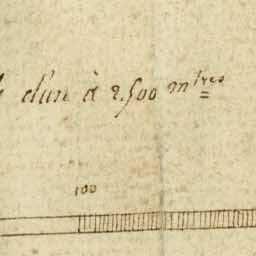 d'un à 2500 mtres
100